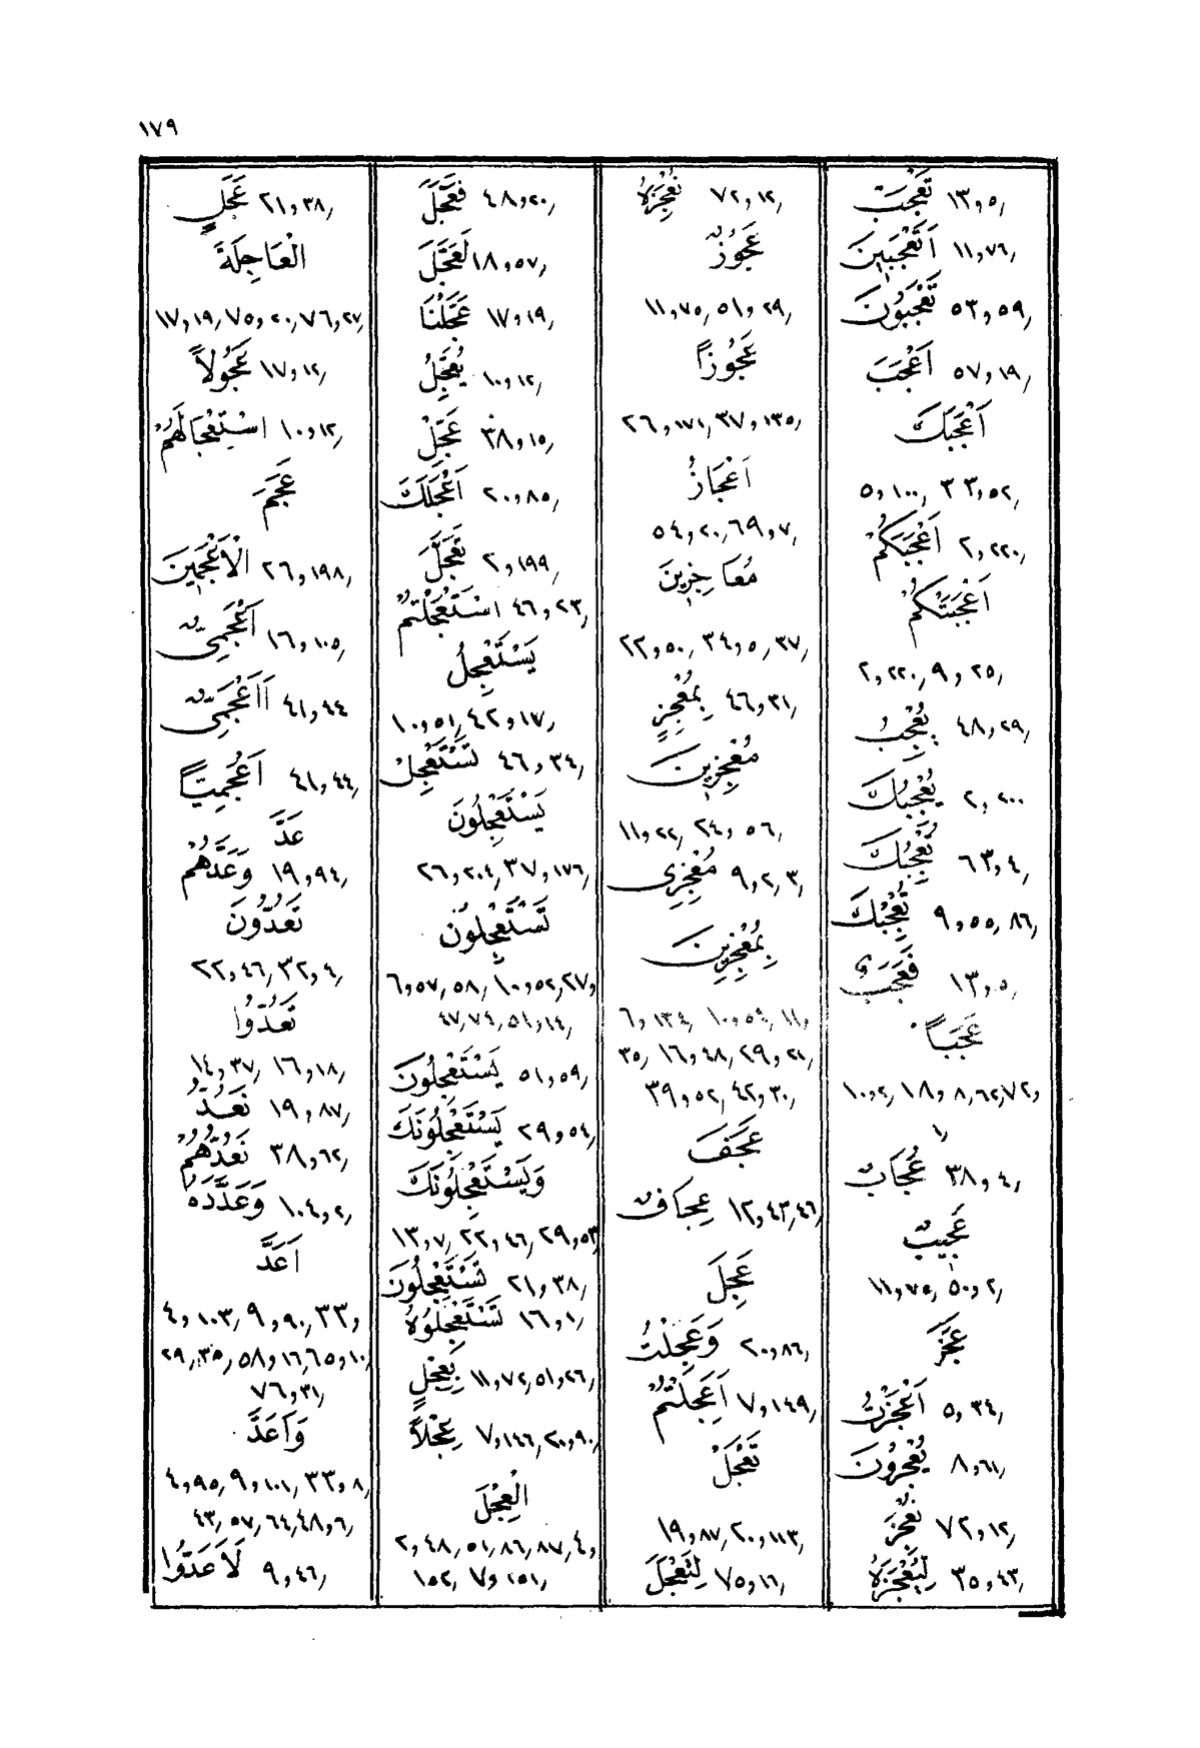 ١٧٩
تَعْجَبْ ١٣,٥,
اَتَعْجَبِينَ ١١,٧٣,
تَعْجَبُونَ ٥٣,٥٩,
اَعْجَبَ ٥٧,١٩,
اَعْجَبَكَ
٥,١٠٠, ٣٣,٥٢,
اَعْجَبَكُمْ ٢,٢٢٠,
اَعْجَبَتْكُمْ
٢,٢٢٠, ٩,٢٥,
يُعْجِبُ ٤٨,٢٩,
يُعْجِبُكَ ٢,٢٠٠
تُعْجِبُكَ ٦٣,٤,
تُعْجِبْكَ ٩,٥٥,٨٦,
فَعَجَبٌ ١٣,٥,
عَجَبًا
١٠,٢, ١٨,٨,٦٢,٧٢,
١,
عُجَابٌ ٣٨,٤,
عَجِيبٌ
١١,٧٥, ٥٠,٢,
عَجَزَ
اَعَجَزْتُ ٥,٣٤,
يُعْجِزُونَ ٨,٦١,
نُعْجِزَ ٧٢,١٢,
لِيُعْجِزَهُ ٣٥,٤٣,
نُعْجِزَهُ ٧٢,١٢,
عَجُوزٌ
١١,٧٥, ٥١,٢٩,
عَجُوزًا
٢٦,١٧١, ٣٧,١٣٥,
اَعْجَازُ
٥٤,٢٠, ٦٩,٧,
مُعَاجِزِينَ
٢٢,٥٠, ٣٤,٥, ٣٧,
بِمُعْجِزٍ ٤٦,٣١,
مُعْجِزِينَ
١١,٢٢, ٢٤,٥٦,
مُعْجِزِى ٩,٢,٣,
بِمُعْجِزِينَ
٦,١٣٤, ١٠,٥٤, ١١,
٣٥, ١٦,٤٨, ٢٩,٢١,
٣٩,٥٢, ٤٢,٣٠,
عَجَفَ
عِجَافٌ ١٢,٤٣,٤٦,
عَجِلَ
وَعَجِلْتُ ٢٠,٨٦,
اَعَجِلْتُمْ ٧,١٤٩,
تَعْجَلْ
١٩,٨٧, ٢٠,١١٣,
لِتَعْجَلَ ٧٥,١٦,
فَعَجَّلَ ٤٨,٢٠,
لَعَجَّلَ ١٨,٥٧,
عَجَّلْنَا ١٧,١٩,
يُعَجِّلُ ١٠,١٢,
عَجِّلْ ٣٨,١٥,
اَعْجَلَكَ ٢٠,٨٥,
تَعَجَّلَ ٢,١٩٩,
اسْتَعْجَلْتُمْ ٤٦,٢٣,
يَسْتَعْجِلُ
١٠,٥١, ٤٢,١٧,
تَسْتَعْجِلْ ٤٦,٣٤,
يَسْتَعْجِلُونَ
٢٦,٢٠٤, ٣٧,١٧٦,
تَسْتَعْجِلُونَ
٦,٥٧, ٥٨, ١٠,٥٢,٢٧,
٤٧,٧٤, ٥١,١٤,
يَسْتَعْجِلُونَ ٥١,٥٩,
يَسْتَعْجِلُونَكَ ٢٩,٥٤,
وَيَسْتَعْجِلُونَكَ
١٣,٧, ٢٢,٤٦, ٢٩,٥٣
تَسْتَعْجِلُونَ ٢١,٣٨,
تَسْتَعْجِلُوهُ ١٦,١,
بِعِجْلٍ ١١,٧٢, ٥١,٢٦,
عِجْلاً ٧,١٤٦, ٢٠,٩٠,
الْعِجْلَ
٢,٤٨, ٥١, ٨٦, ٨٧, ٤,
١٥٢, ٧,١٥١,
عَجَلٍ ٢١,٣٨,
الْعَاجِلَةَ
١٧,١٩, ٧٥,٢٠, ٧٦,٢٧,
عَجُولاً ١٧,١٢,
اسْتِعْجَالَهُمْ ١٠,١٢,
عَجَمَ
الْاَعْجَمِينَ ٢٦,١٩٨,
اَعْجَمِىٌّ ١٦,١٠٥,
ءَاَعْجَمِىٌّ ٤١,٤٤
اَعْجَمِيًّا ٤١,٤٤,
عَدَّ
وَعَدَّهُمْ ١٩,٩٤,
تَعُدُّونَ
٢٢,٤٦, ٣٢,٤,
تَعُدُّوا
١٤,٣٧, ١٦,١٨,
نَعُدُّ ١٩,٨٧,
نَعُدُّهُمْ ٣٨,٦٢,
وَعَدَّدَهُ ١٠٤,٢,
اَعَدَّ
٤,١٠٣, ٩,٩٠, ٣٣,
٢٩, ٣٥, ٥٨,١٦, ٦٥,١٠,
٧٦,٣١,
وَاَعَدَّ
٤,٩٥, ٩,١٠١, ٣٣,٨,
٤٣, ٥٧, ٦٤, ٤٨,٦,
لَاَعَدُّوا ٩,٤٦,